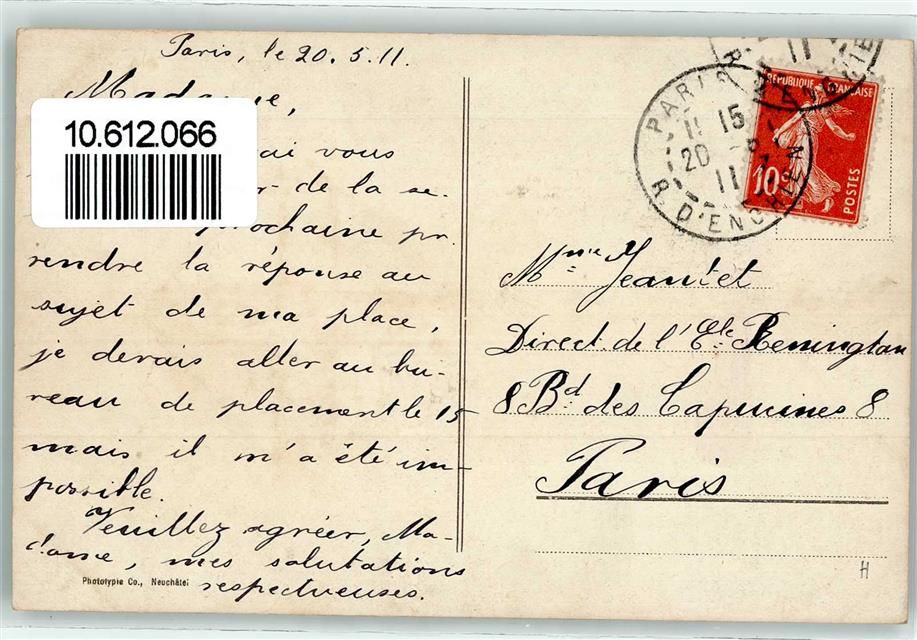 Paris, le 20.5.11.
Madame,
10.612.066
ai vous
de la se-
prochaine pr.
rendre la réponse au
sujet de ma place,
je devais aller au bu-
reau de placement le 15
mais il m'a été im-
possible.
Veuillez agréer, Ma-
dame, mes salutations
respectueuses.
Phototypie Co., Neuchâtel
PARIS
11 15
20 - 5
11
R. D'ENGHIEN
11
R. D'ENGHIEN
REPUBLIQUE FRANÇAISE
10
POSTES
Mme Jeantet
Direct. de l'Ele Remington
8 Bd des Capucines 8
Paris
H